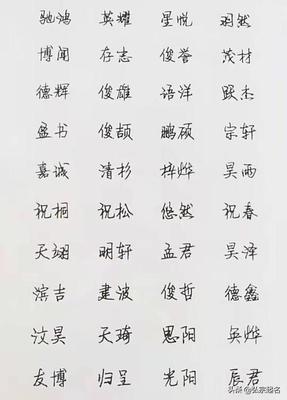 驰鸿 英耀 星悦 羽然
博闻 存志 俊誉 茂材
德辉 俊雄 语洋 跃杰
盈书 俊颉 鹏硕 宗轩
嘉诚 清杉 梓烨 昊雨
祝桐 祝松 悠然 祝春
天翊 明轩 孟君 昊泽
滨吉 建波 俊哲 德鑫
汶昊 天琦 思阳 奂烨
友博 归呈 光阳 辰君
头条 @弘宗起名